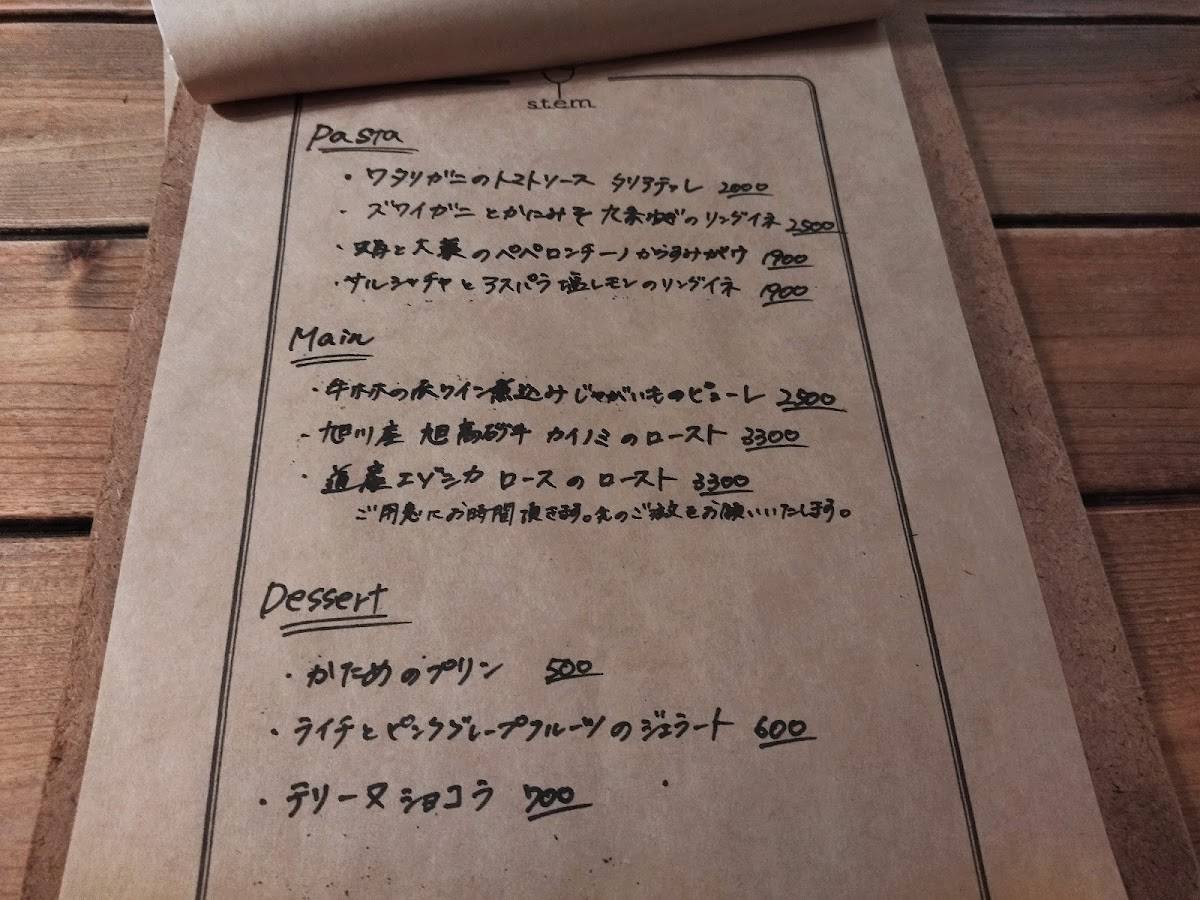 stem
Pasta
・ワタリガニのトマトソース タリアテッレ 2000
・ズワイガニとかにみそ 九条ねぎのリングイネ 2500
・蛤と大葉のペペロンチーノからすみがけ 1900
・サルシッチャとアスパラ 塩レモンのリングイネ 1900
Main
・牛ホホの赤ワイン煮込みじゃがいものピューレ 2500
・旭川産 旭高砂牛 カイノミのロースト 3300
・道産エゾシカ ロースのロースト 3300
ご用意にお時間頂きます。先のご注文をお願いいたします。
Dessert
・かためのプリン 500
・ライチとピンクグレープフルーツのジェラート 600
・テリーヌショコラ 700